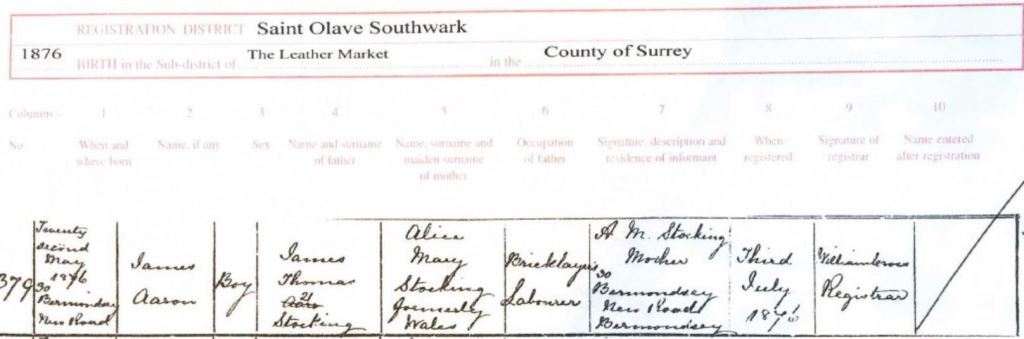 REGISTRATION DISTRICT Saint Olave Southwark
1876 BIRTH in the Sub-district of The Leather Market in the County of Surrey
Columns:- 1 2 3 4 5 6 7 8 9 10
No. When and where born Name, if any Sex Name and surname of father Name, surname and maiden surname of mother Occupation of father Signature, description and residence of informant When registered Signature of registrar Name entered after registration
379
Twenty
second
May
1876
30
Bermondsey
New Road
James
Aaron
Boy
James
Thomas
Stocking
Alice
Mary
Stocking
formerly
Wales
Bricklayers
Labourer
A. M. Stocking
Mother
30
Bermondsey
New Road
Bermondsey
Third
July
1876
Registrar